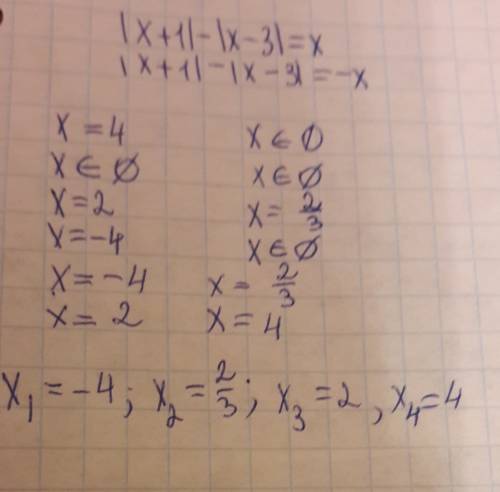 |x+1|-|x-3|=x
|x+1|-|x-3|=-x
x=4 x∈∅
x∈∅ x∈∅
x=2 x=2/3
x=-4 x∈∅
x=-4 x=2/3
x=2 x=4
x₁=-4; x₂=2/3; x₃=2, x₄=4